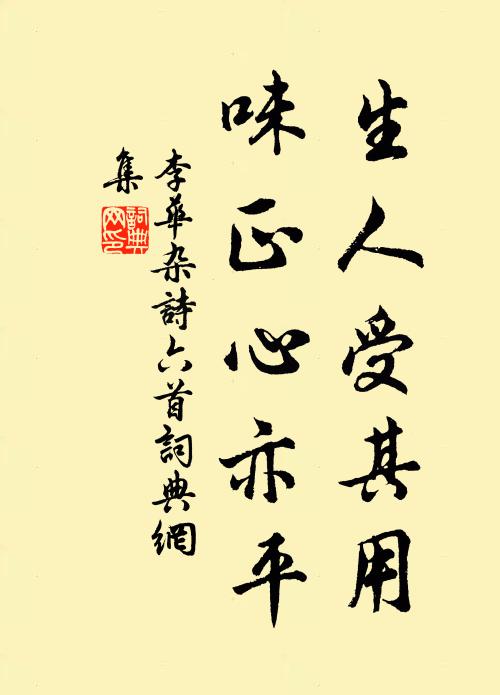 生人受其用
味正心亦平
李華杂詩六首詞典網
集
詞典
网印